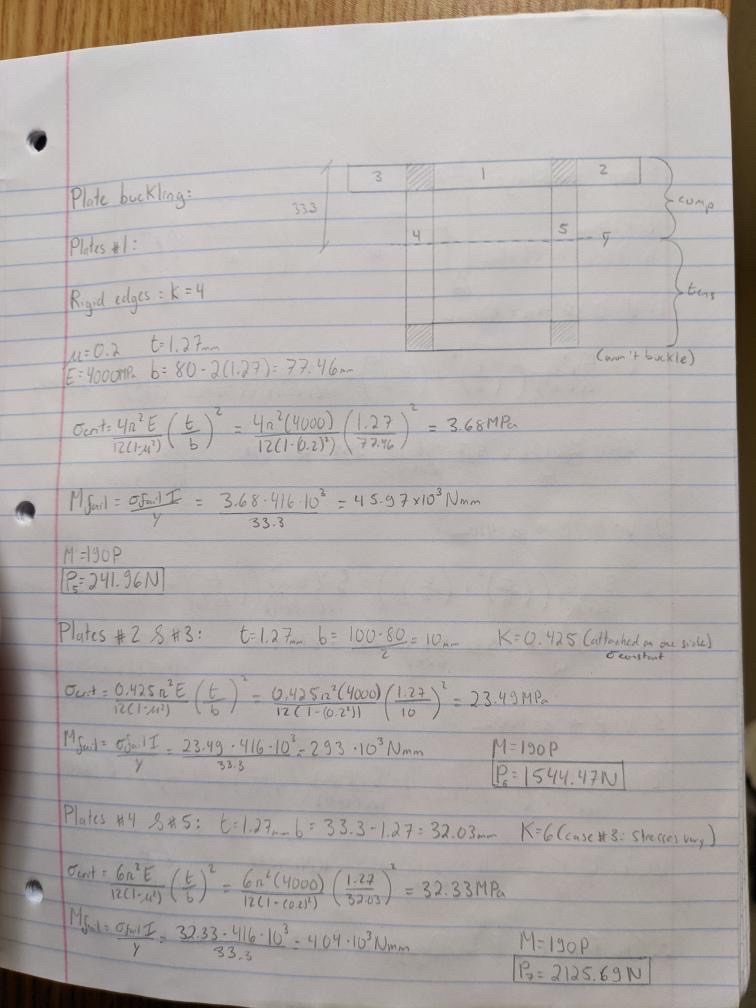 3 1 2
Plate buckling:
33.3
comp
Plates #1:
4 5 ȳ
tens
Rigid edges: K=4
μ=0.2 t=1.27mm
(won't buckle)
E=4000MPa b= 80-2(1.27)= 77.46mm
σcrit= 4π²E/12(1-μ²) (t/b)² = 4π²(4000)/12(1-(0.2)²) (1.27/77.46)² = 3.68MPa
Mfail = σfail I/y = 3.68·416·10³/33.3 = 45.97×10³ Nmm
M=190P
P₅=241.96N
Plates #2 & #3: t=1.27mm b= 100-80/2 = 10mm K=0.425 (attached on one side)
σ constant
σcrit= 0.425π²E/12(1-μ²) (t/b)² = 0.425π²(4000)/12(1-(0.2²)) (1.27/10)² = 23.49MPa
Mfail = σfail I/y = 23.49·416·10³/33.3 = 293·10³Nmm M=190P
P₆=1544.47N
Plates #4 & #5: t=1.27mm b= 33.3-1.27= 32.03mm K=6 (case #3: stresses vary)
σcrit= 6π²E/12(1-μ²) (t/b)² = 6π²(4000)/12(1-(0.2)²) (1.27/32.03)² = 32.33MPa
Mfail = σfail I/y = 32.33·416·10³/33.3 = 404·10³Nmm M=190P
P₇= 2125.69N